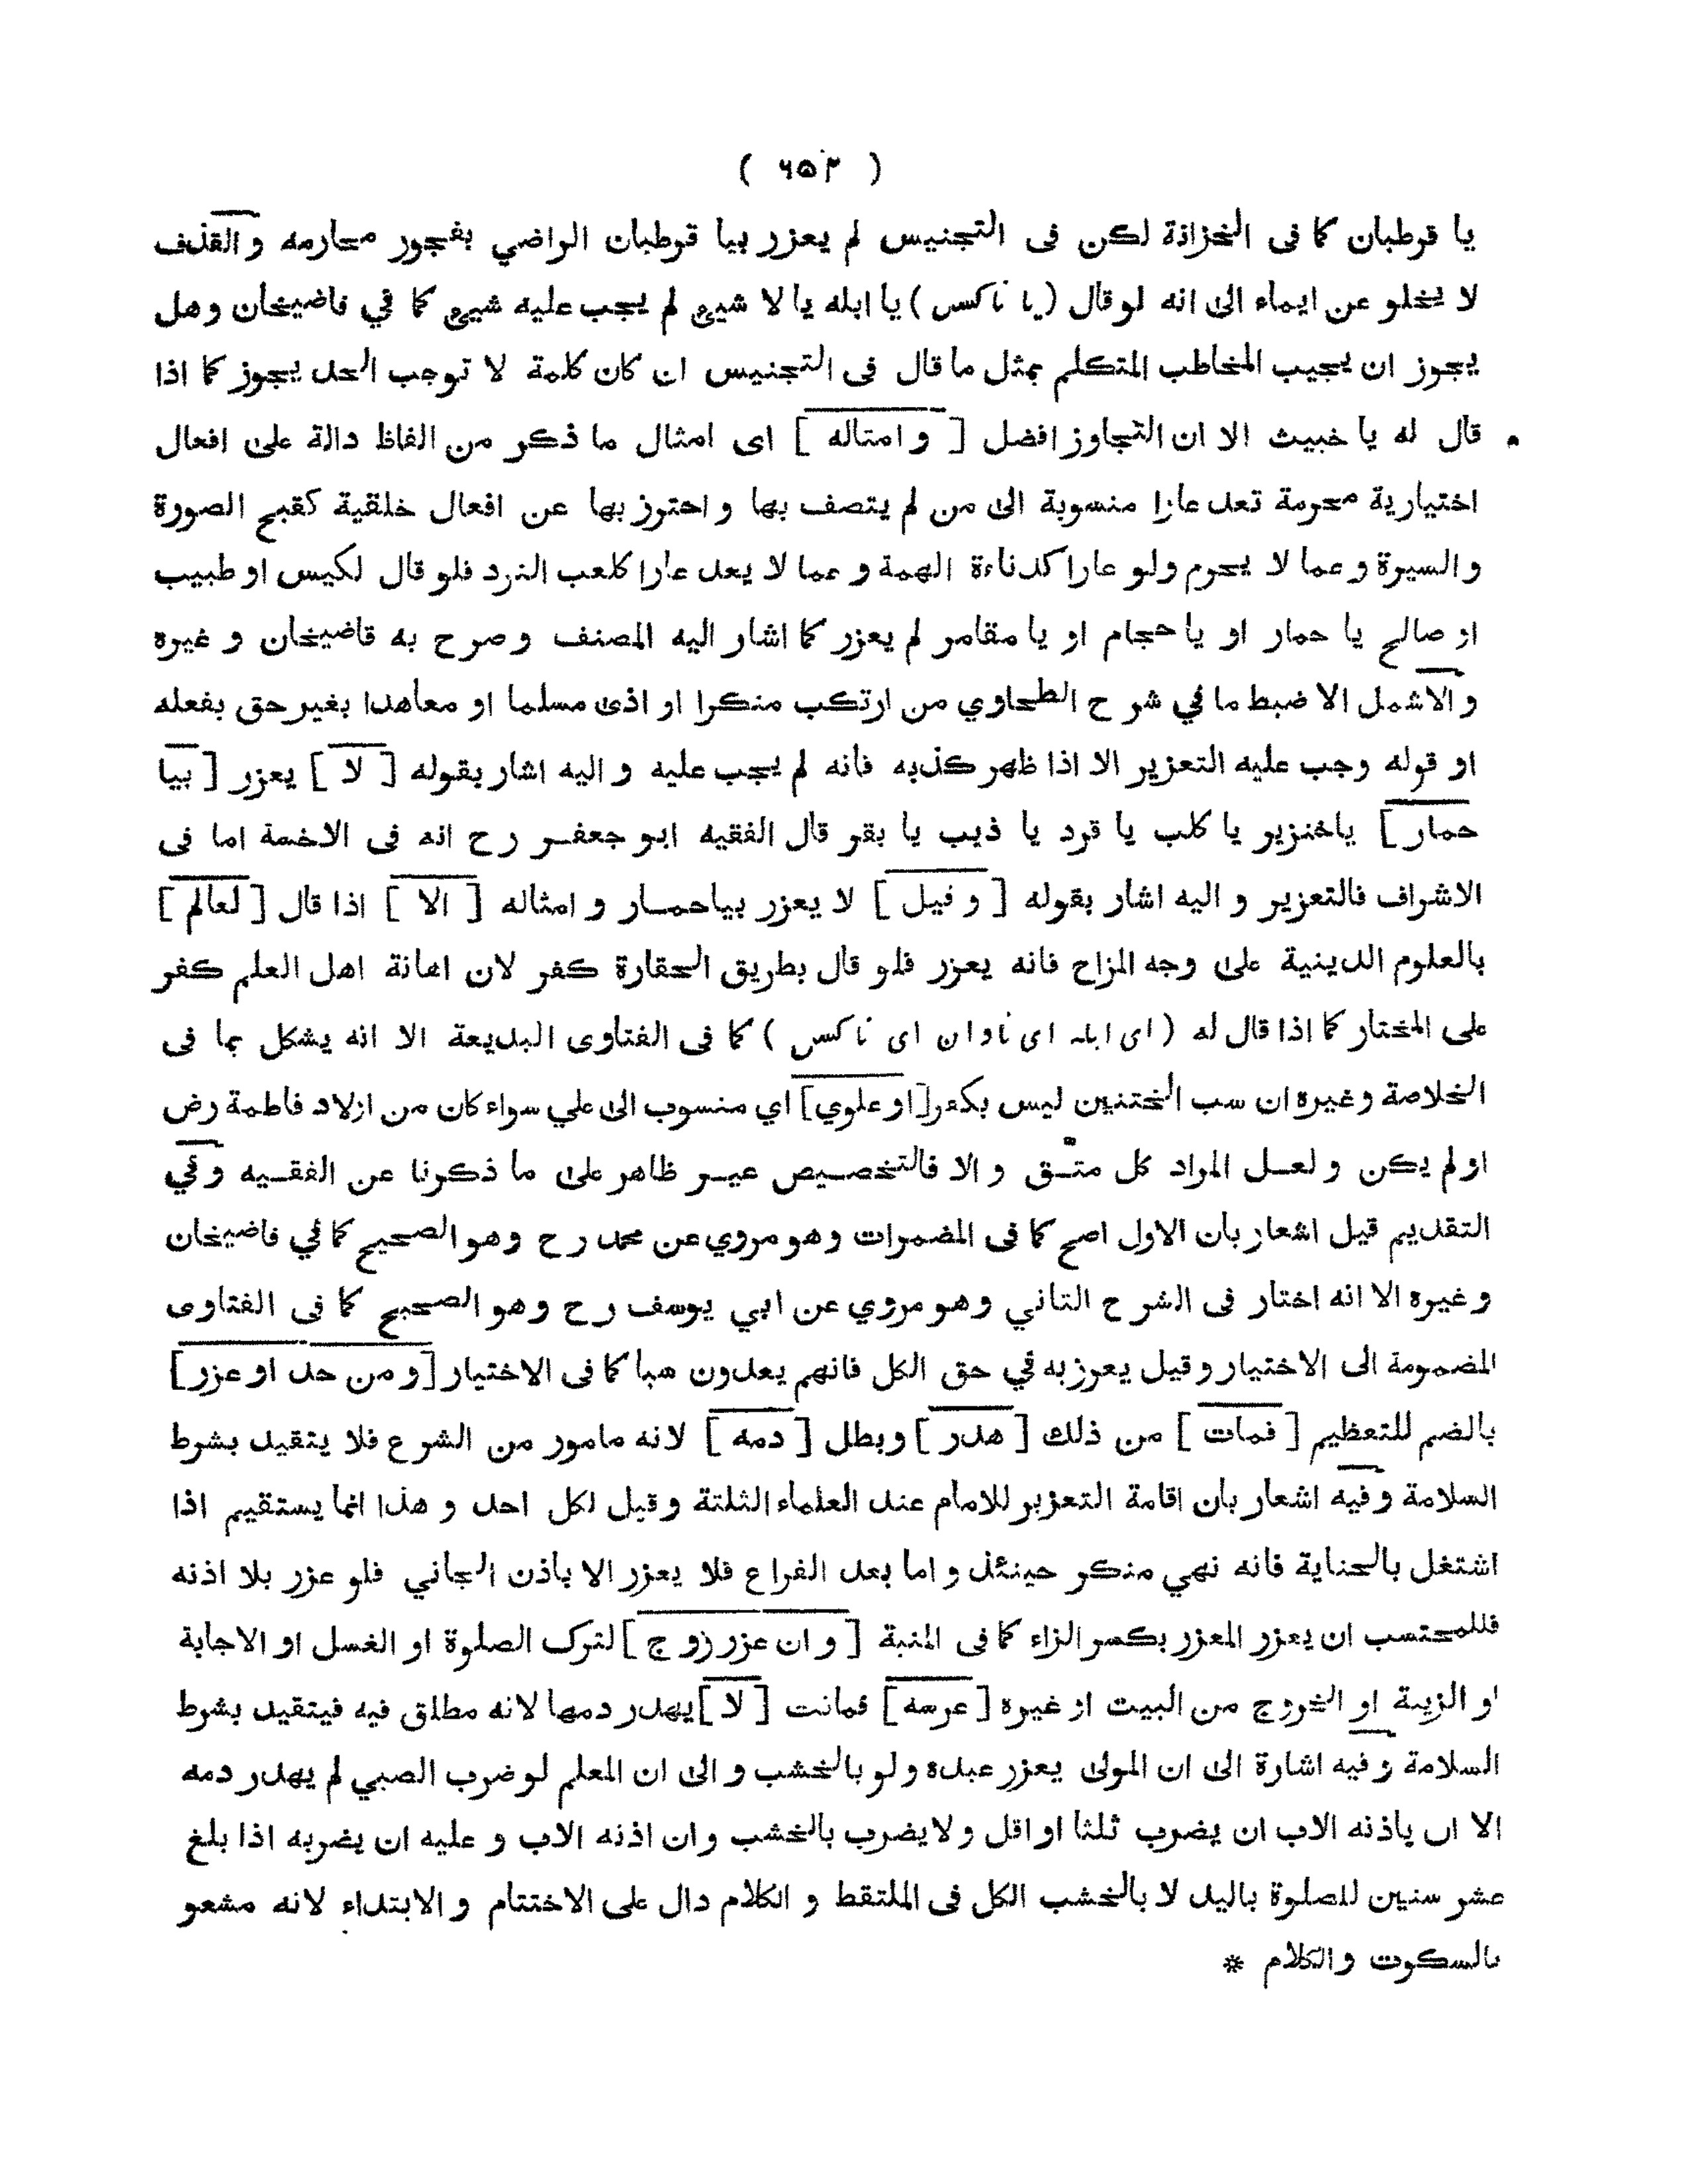 ( ٦٥٣ )
يا قرطبان كما فى الخزانة لكن فى التجنيس لم يعزر بيا قرطبان الراضي بفجور محارمه و القذف
لا يخلو عن ايماء الى انه لو قال (يا ناكس) يا ابله يا لا شيئ لم يجب عليه شيئ كما في قاضيخان وهل
يجوز ان يجيب المخاطب المتكلم بمثل ما قال فى التجنيس ان كان كلمة لا توجب الحد يجوز كما اذا
قال له يا خبيث الا ان التجاوز افضل [ و امثاله ] اى امثال ما ذكر من الفاظ دالة على افعال
اختيارية محرمة تعد عارا منسوبة الى من لم يتصف بها و احترز بها عن افعال خلقية كقبح الصورة
و السيرة و عما لا يحرم ولو عارا كدناءة الهمة و عما لا يعد عارا كلعب النرد فلو قال لكيس او طبيب
او صالح يا حمار او يا حجام او يا مقامر لم يعزر كما اشار اليه المصنف و صرح به قاضيخان و غيره
و الاشمل الاضبط ما في شرح الطحاوي من ارتكب منكرا او اذى مسلما او معاهدا بغير حق بفعله
او قوله وجب عليه التعزير الا اذا ظهر كذبه فانه لم يجب عليه و اليه اشار بقوله [ لا ] يعزر [ بيا
حمار ] ياخنزير يا كلب يا قرد يا ذيب يا بقر قال الفقيه ابو جعفر رح انه فى الاخسة اما فى
الاشراف فالتعزير و اليه اشار بقوله [ و قيل ] لا يعزر بياحمار و امثاله [ الا ] اذا قال [ لعالم ]
بالعلوم الدينية على وجه المزاح فانه يعزر فلو قال بطريق الحقارة كفر لان اهانة اهل العلم كفر
على المختار كما اذا قال له ( اى ابله اى نادان اى ناكس ) كما فى الفتاوى البديعة الا انه يشكل بما فى
الخلاصة وغيره ان سب الختنين ليس بكفر [او علوي] اي منسوب الى علي سواء كان من اولاد فاطمة رض
او لم يكن و لعل المراد كل متق و الا فالتخصيص غير ظاهر على ما ذكرنا عن الفقيه و في
التقديم قيل اشعار بان الاول اصح كما فى المضمرات وهو مروي عن محمد رح وهو الصحيح كما في قاضيخان
و غيره الا انه اختار فى الشرح الثاني وهو مروي عن ابي يوسف رح وهو الصحيح كما فى الفتاوى
المضمومة الى الاختيار و قيل يعزر به في حق الكل فانهم يعدون سبا كما فى الاختيار [و من حد او عزر]
بالضم للتعظيم [ فمات ] من ذلك [ هدر ] و بطل [ دمه ] لانه مامور من الشرع فلا يتقيد بشرط
السلامة و فيه اشعار بان اقامة التعزير للامام عند العلماء الثلثة و قيل لكل احد و هذا انما يستقيم اذا
اشتغل بالجناية فانه نهي منكر حينئذ و اما بعد الفراغ فلا يعزر الا باذن الجاني فلو عزر بلا اذنه
فللمحتسب ان يعزر المعزر بكسر الزاء كما فى المنية [ و ان عزر زوج ] لترك الصلوة او الغسل او الاجابة
او الزينة او الخروج من البيت او غيره [ عرسه ] فماتت [ لا ] يهدر دمها لانه مطلق فيه فيتقيد بشرط
السلامة و فيه اشارة الى ان المولى يعزر عبده و لو بالخشب و الى ان المعلم لو ضرب الصبي لم يهدر دمه
الا ان ياذنه الاب ان يضرب ثلثا او اقل و لا يضرب بالخشب و ان اذنه الاب و عليه ان يضربه اذا بلغ
عشر سنين للصلوة باليد لا بالخشب الكل فى الملتقط و الكلام دال على الاختتام و الابتداء لانه مشعر
بالسكوت و الكلام *